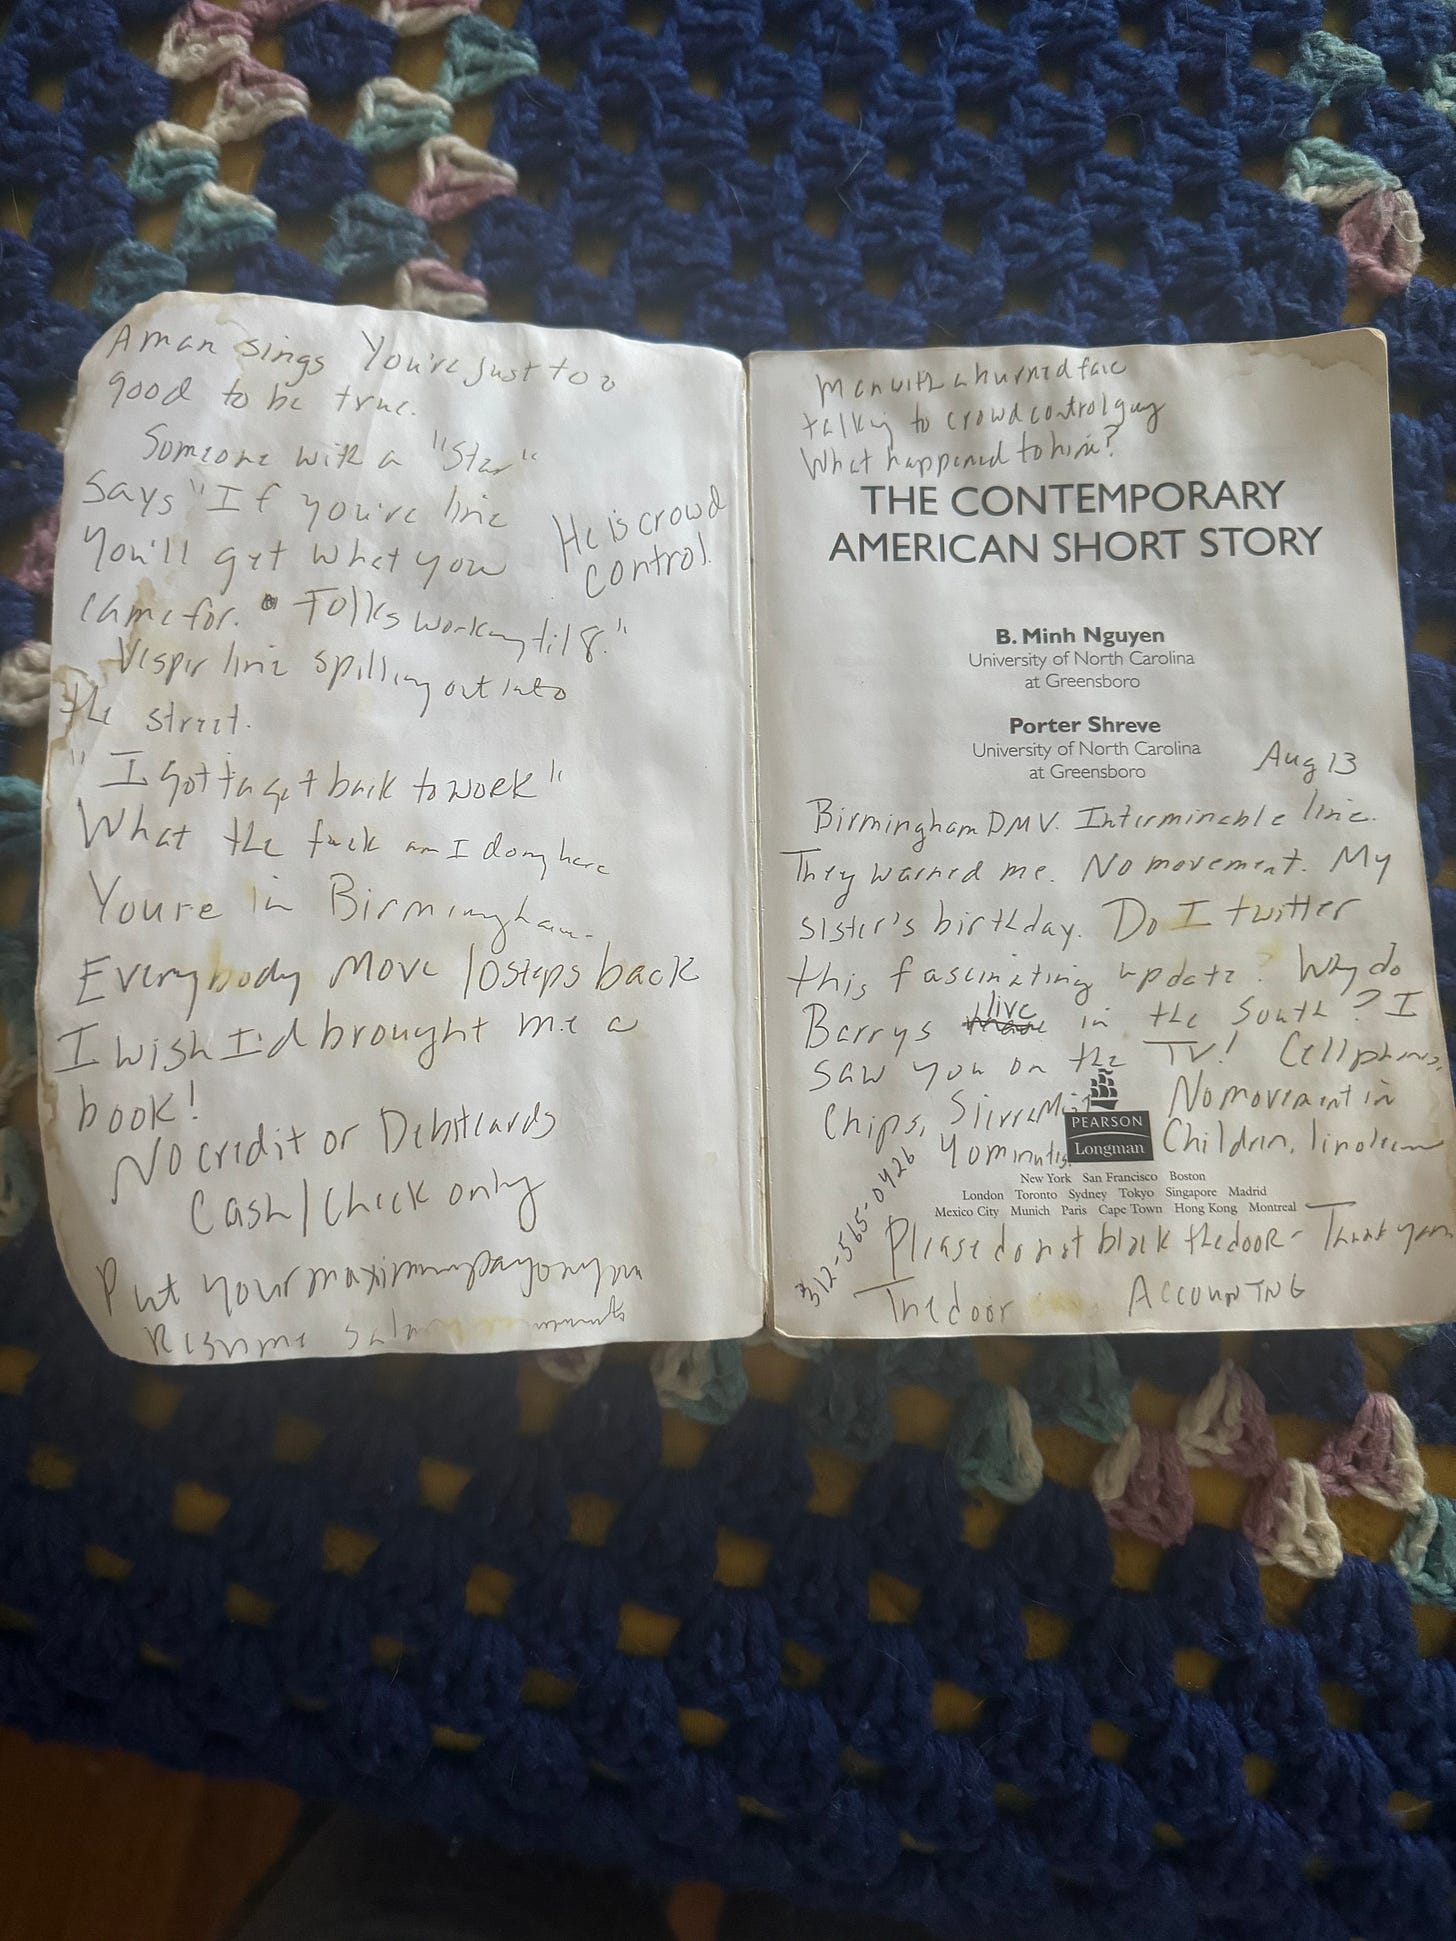 A man sings You're just too
good to be true.
Someone with a "Star"
says "If you're line
you'll get what you
came for. Folks working til 8."
He is crowd
control.
line spilling out into
the street.
"I gotta get back to work"
What the fuck am I doing here
Youre in Birmingham.
Everybody move 10 steps back
I wish I'd brought me a
book!
No credit or Debitcards
Cash/Check only
Put your maximum pay on your
Resume
Man with a burned face
talking to crowd control guy
What happened to him?
THE CONTEMPORARY
AMERICAN SHORT STORY
B. Minh Nguyen
University of North Carolina
at Greensboro
Porter Shreve
University of North Carolina
at Greensboro
Aug 13
Birmingham DMV. Interminable line.
They warned me. No movement. My
sister's birthday. Do I twitter
this fascinating update? Why do
Barrys live in the South? I
saw you on the TV! Cellphones,
Chips, Sierra Mist
No movement in
40 minutes.
Children, linoleum
PEARSON
Longman
New York San Francisco Boston
London Toronto Sydney Tokyo Singapore Madrid
Mexico City Munich Paris Cape Town Hong Kong Montreal
312-565-0426
Please do not block the door - Thank you
The door
ACCOUNTING